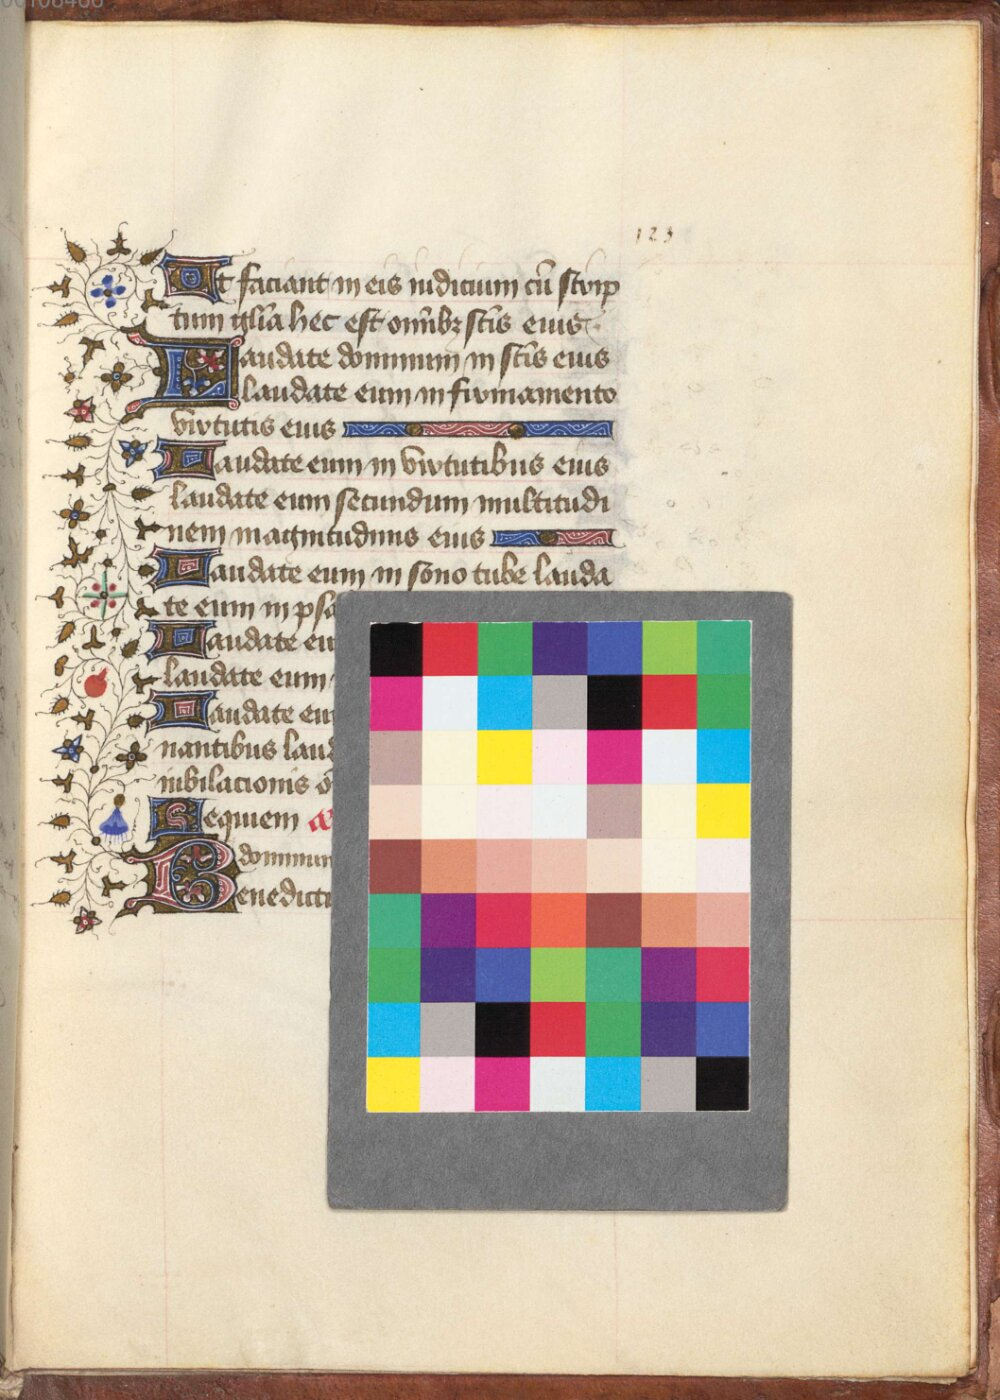 123
Ut faciant in eis iudicium cū scrip
tum gl̄ia hec est om̄ibꝫ sc̄is eius
Laudate dominum in sc̄is eius
laudate eum in firmamento
virtutis eius
Laudate eum in virtutibus eius
laudate eum secundum multitudi
nem magnitudinis eius
Laudate eum in sono tube lauda
te eum in psa
Laudate eu
laudate eum
Laudate eu
nantibus laud
iubilacionis o
Requiem
dominum
Benedictu